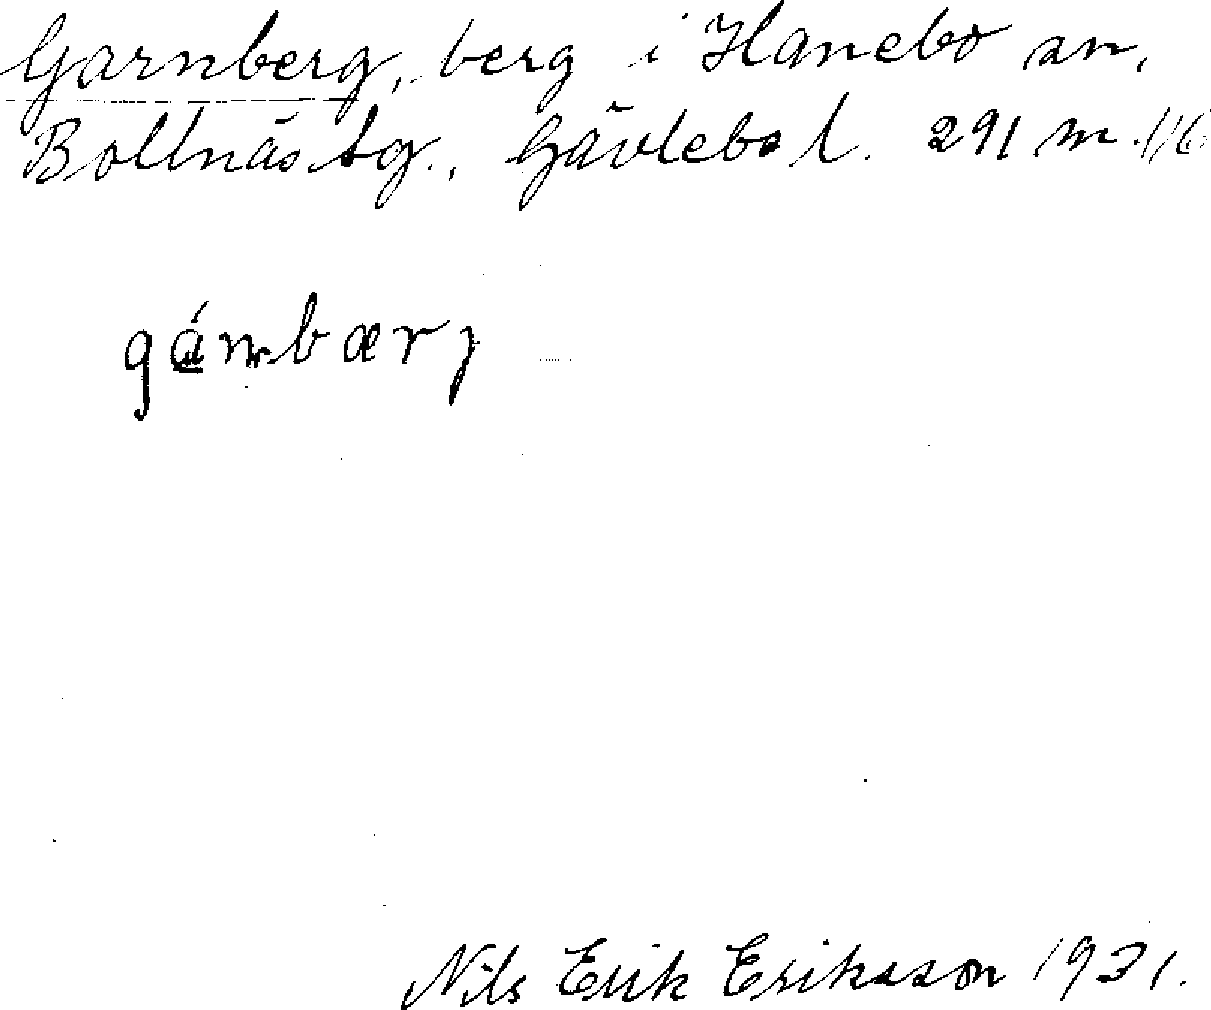 Garnberg, berg i Hanebo sn,
Bollnäs tg., Gävlebo l. 291 m.
gámbærj
Nils Erik Eriksson 1931.